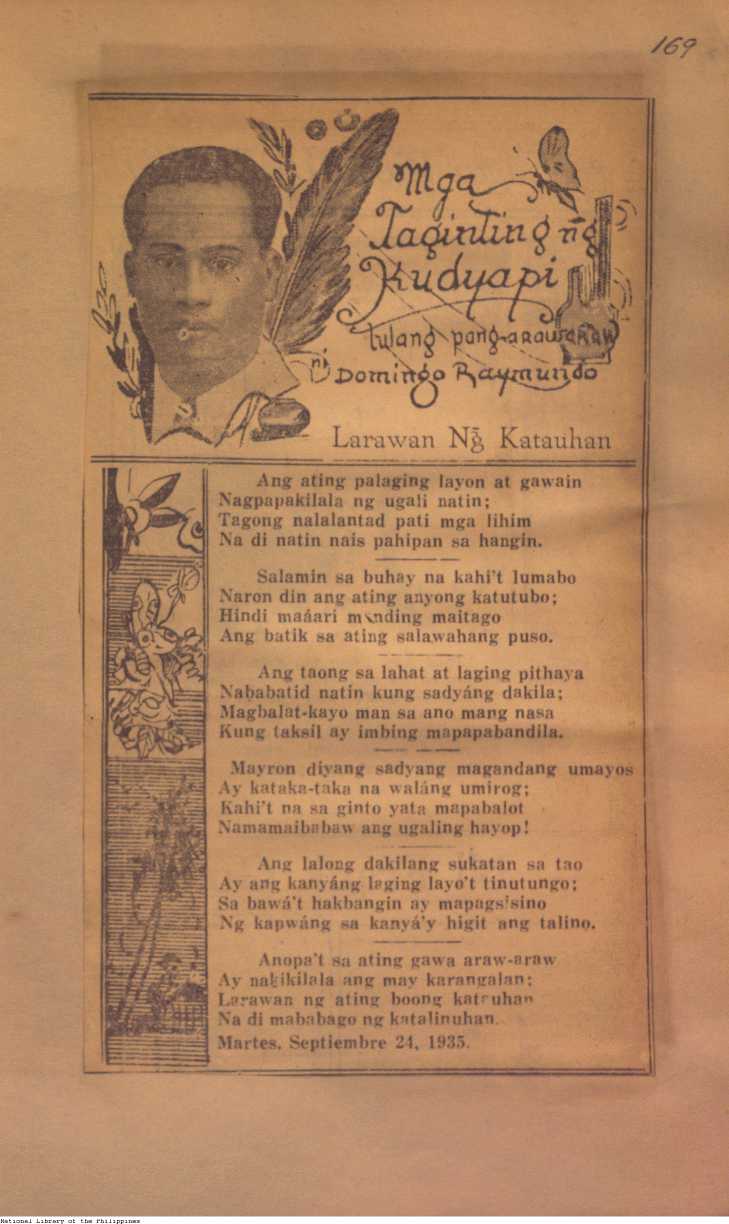 169
Mga
Taginting ng̃
Kudyapi
tulang pang-araw-araw
ni
Domingo Raymundo
Larawan Ng̃ Katauhan
Ang ating palaging layon at gawain
Nagpapakilala ng ugali natin;
Tagong nalalantad pati mga lihim
Na di natin nais pahipan sa hangin.
Salamin sa buhay na kahi't lumabo
Naron din ang ating anyong katutubo;
Hindi maáari manding maitago
Ang batik sa ating salawahang puso.
Ang taong sa lahat at laging pithaya
Nababatid natin kung sadyáng dakila;
Magbalat-kayo man sa ano mang nasa
Kung taksil ay imbing mapapabandila.
Mayron diyang sadyang magandang umayos
Ay kataka-taka na waláng umirog;
Kahi't na sa ginto yata mapabalot
Namamaibabaw ang ugaling hayop!
Ang lalong dakilang sukatan sa tao
Ay ang kanyáng laging layo't tinutungo;
Sa bawá't hakbangin ay mapagsisino
Ng kapwáng sa kanyá'y higit ang talino.
Anopa't sa ating gawa araw-araw
Ay nakikilala ang may karangalan;
Larawan ng ating boong katauhan
Na di mababago ng katalinuhan.
Martes, Septiembre 24, 1935.
National Library of the Philippines